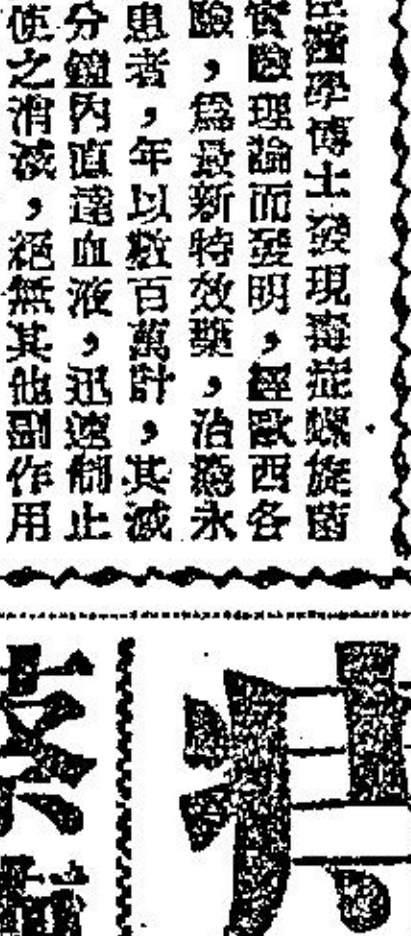 醫學博士發現毒症螺旋菌
實驗理論而發明，經歐西各
驗，爲最新特效藥，治癒永
患者，年以數百萬計，其滅
分鐘內直達血液，迅速制止
使之消滅，絕無其他副作用